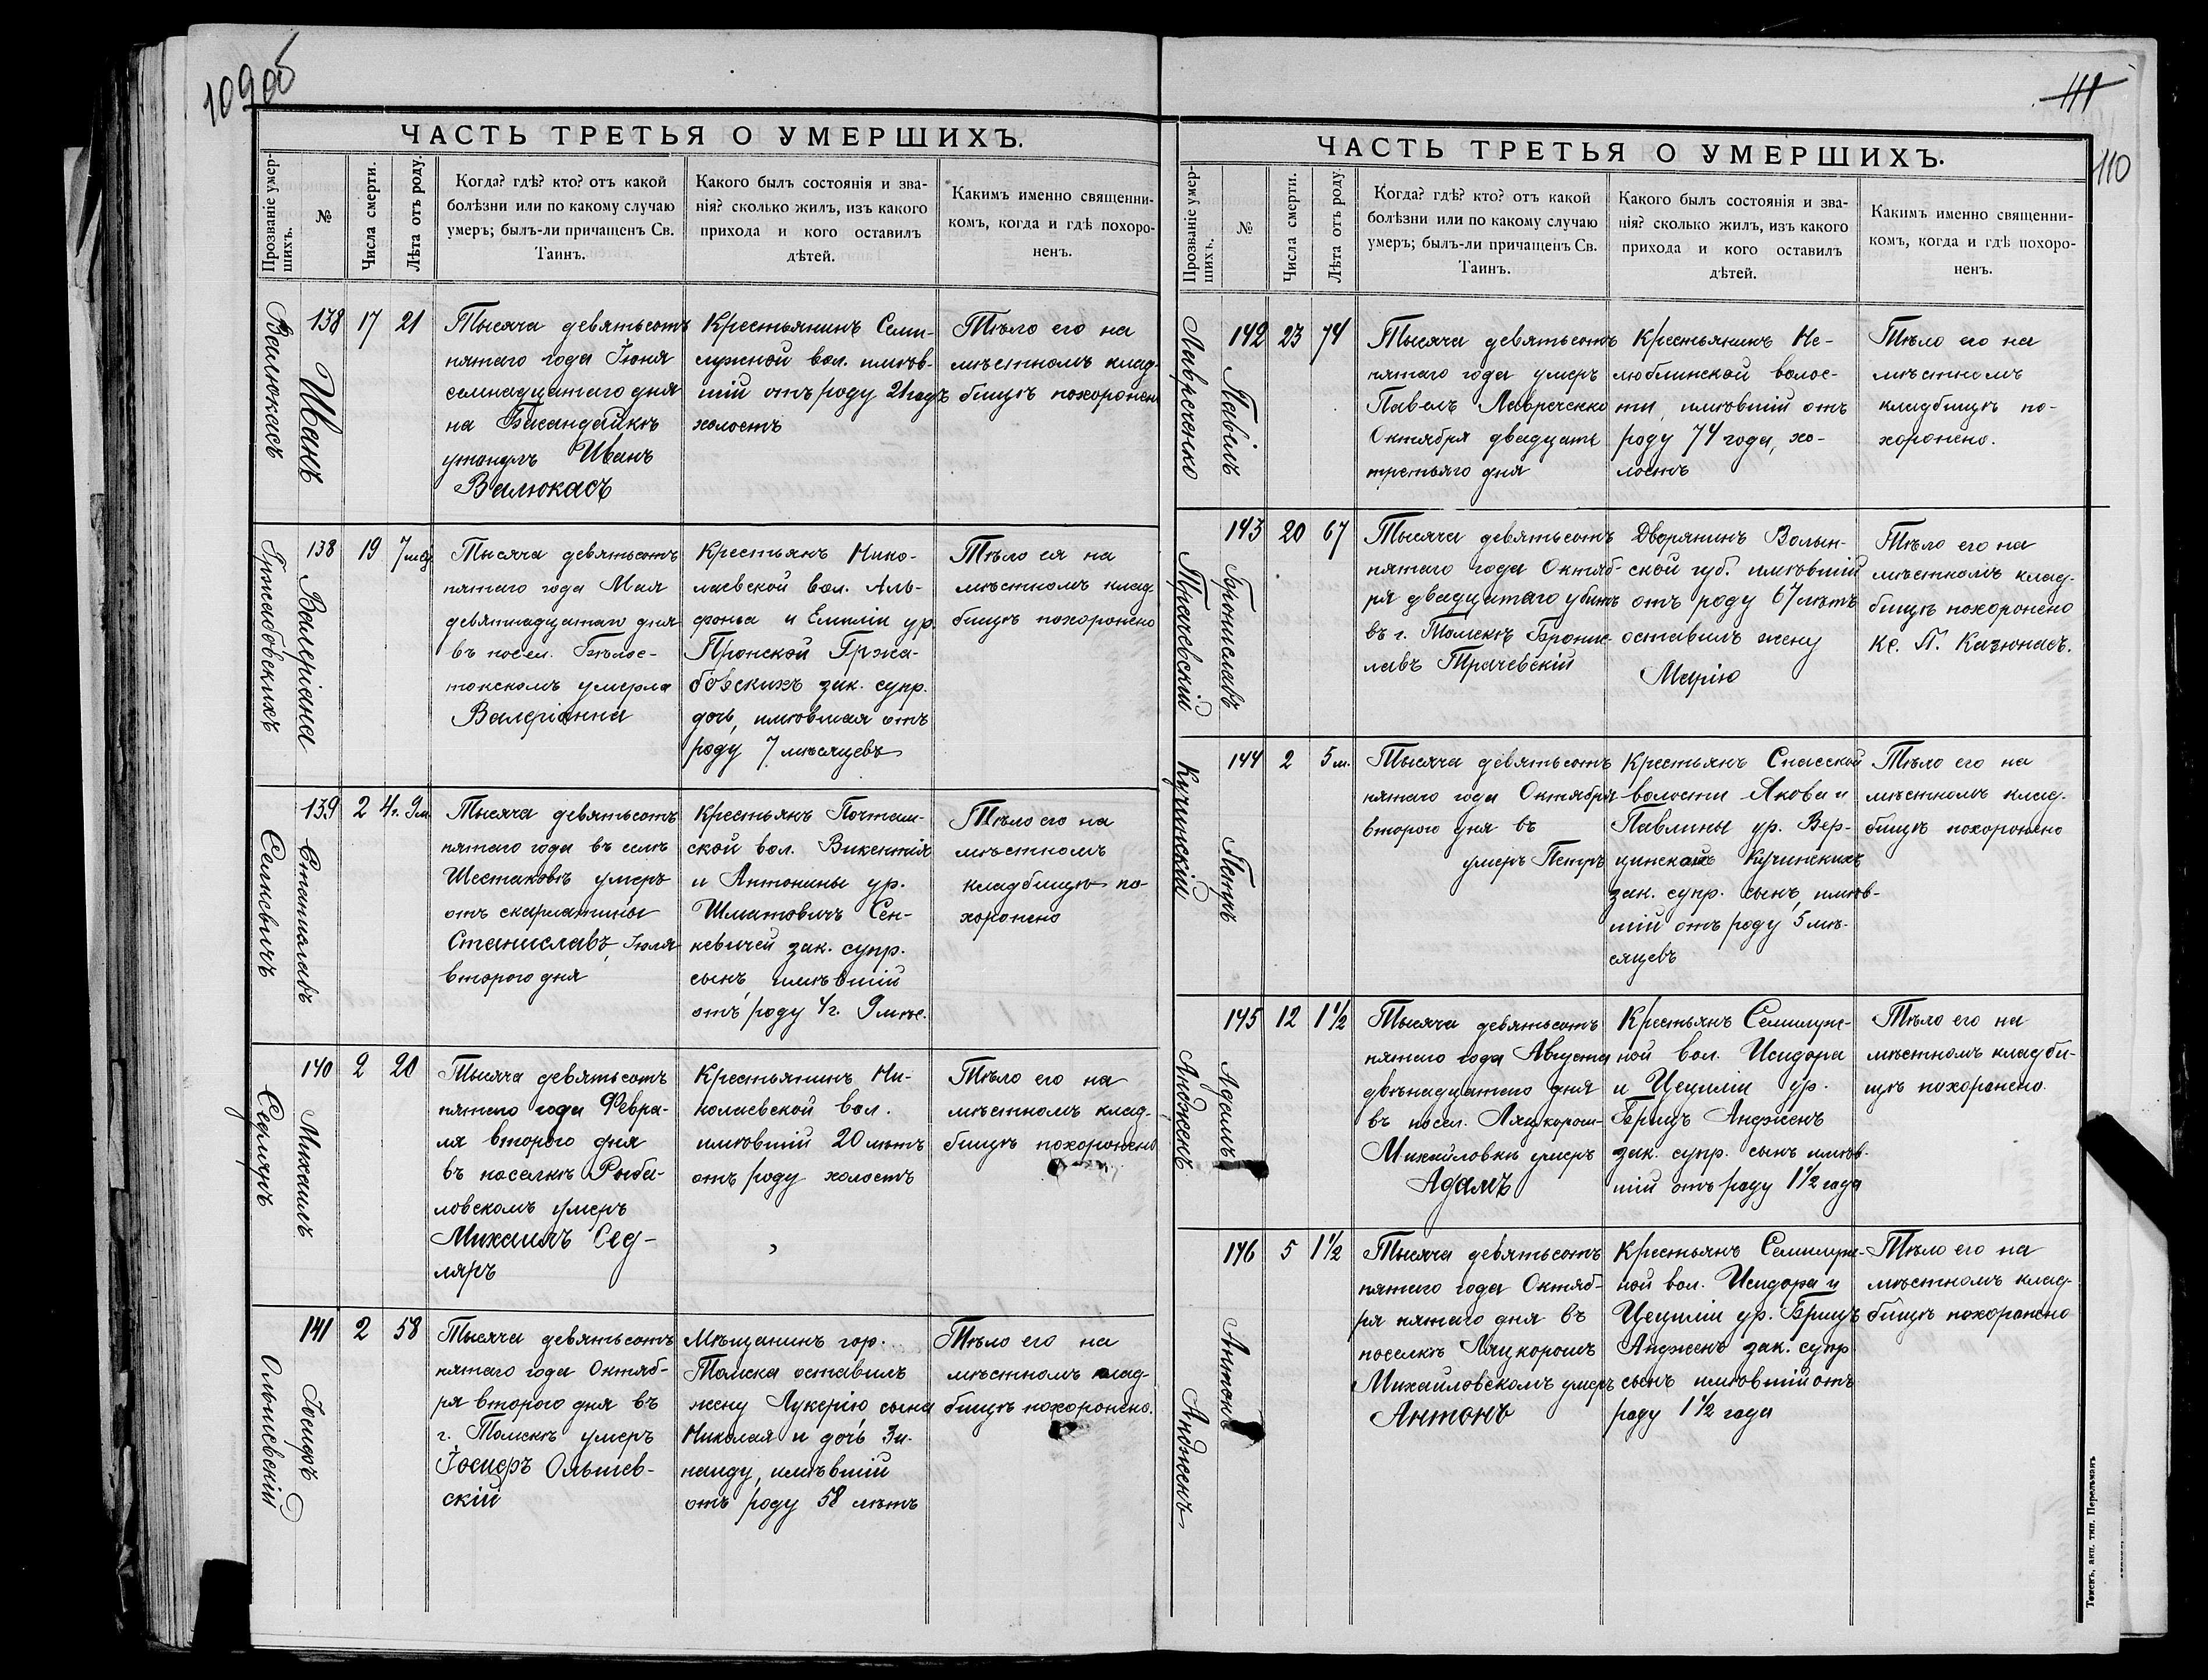 109об
ЧАСТЬ ТРЕТЬЯ О УМЕРШИХЪ.
Прозваніе умер-
шихъ.
№
Числа смерти.
Лѣта отъ роду.
Когда? гдѣ? кто? отъ какой
болѣзни или по какому случаю
умеръ; былъ-ли причащенъ Св.
Таинъ.
Какого былъ состоянія и зва-
нія? сколько жилъ, изъ какого
прихода и кого оставилъ
дѣтей.
Какимъ именно священни-
комъ, когда и гдѣ похоро-
ненъ.
Валюкасъ
138
Иванъ
17
21
Тысяча девятьсотъ
пятаго года Іюня
семнадцатаго дня
на Басандайкѣ
утонулъ Иванъ
Валюкасъ
Крестьянинъ Семи-
лужной вол. имѣв-
шій отъ роду 21 годъ
холостъ
Тѣло его на
мѣстномъ клад-
бищѣ похоронен
Гржабовскихъ
138
Валеріана
19
7 мѣс
Тысяча девятьсотъ
пятаго года Мая
девятнадцатаго дня
въ посел. Бѣлос-
токскомъ умерла
Валеріанна
Крестьянъ Нико-
лаевской вол. Аль-
фонса и Емиліи ур.
Пронской Гржа-
бовскихъ зак. супр.
дочь, имѣвшая отъ
роду 7 мѣсяцевъ
Тѣло ея на
мѣстномъ клад-
бищѣ похоронено
Сенкевичъ
139
Станиславъ
2
4 г. 9 м
Тысяча девятьсотъ
пятаго года въ селѣ
Шестаковѣ умеръ
отъ скарлатины
Станиславъ, Іюля
второго дня
Крестьянъ Почтам-
ской вол. Викентія
и Антонины ур.
Шматовичъ Сен-
кевичей зак. супр.
сынъ, имѣвшій
отъ роду 4 г. 9 мѣс.
Тѣло его на
мѣстномъ
кладбищѣ по-
хоронено
Седляръ
140
Михаилъ
2
20
Тысяча девятьсотъ
пятаго года Февра-
ля второго дня
въ поселкѣ Рыба-
ловскомъ умеръ
Михаилъ Сед-
ляръ
Крестьянинъ Ни-
колаевской вол.
имѣвшій 20 лѣтъ
отъ роду холостъ
Тѣло его на
мѣстномъ клад-
бищѣ похоронено
Ольшевскій
141
Іосифъ
2
58
Тысяча девятьсотъ
пятаго года Октяб-
ря второго дня въ
г. Томскѣ умеръ
Іосифъ Ольшев-
скій
Мѣщанинъ гор.
Томска оставилъ
жену Лукерію, сына
Николая и дочь Зи-
наиду, имѣвшій
отъ роду 58 лѣтъ
Тѣло его на
мѣстномъ клад-
бищѣ похоронено.
111
110
ЧАСТЬ ТРЕТЬЯ О УМЕРШИХЪ.
Прозваніе умер-
шихъ.
№
Числа смерти.
Лѣта отъ роду.
Когда? гдѣ? кто? отъ какой
болѣзни или по какому случаю
умеръ; былъ-ли причащенъ Св.
Таинъ.
Какого былъ состоянія и зва-
нія? сколько жилъ, изъ какого
прихода и кого оставилъ
дѣтей.
Какимъ именно священни-
комъ, когда и гдѣ похоро-
ненъ.
Лавреченко
142
Павелъ
23
74
Тысяча девятьсотъ
пятаго года умеръ
Павелъ Лавреченко
Октября двадцать
третьяго дня
Крестьянинъ Не-
люблинской волос-
ти, имѣвшій отъ
роду 74 года, хо-
лостъ
Тѣло его на
мѣстномъ
кладбищѣ по-
хоронено.
Трачевскій
143
Брониславъ
20
67
Тысяча девятьсотъ
пятаго года Октяб-
ря двадцатаго убитъ
въ г. Томскѣ Бронис-
лавъ Трачевскій
Дворянинъ Волын-
ской губ. имѣвшій
отъ роду 67 лѣтъ
оставилъ жену
Марію
Тѣло его на
мѣстномъ клад-
бищѣ похоронено
Кс. П. Казюнасъ.
Кучинскій
144
Петръ
2
5 м.
Тысяча девятьсотъ
пятаго года Октября
второго дня въ
умеръ Петръ
Крестьянъ Спасской
волости Якова и
Павлины ур. Вер-
цинской Кучинскихъ
зак. супр. сынъ, имѣв-
шій отъ роду 5 мѣ-
сяцевъ
Тѣло его на
мѣстномъ клад-
бищѣ похоронено
Андженъ
145
Адамъ
12
1 1/2
Тысяча девятьсотъ
пятаго года Августа
двѣнадцатаго дня
въ посел. Ляцкорош-
Михайловкѣ умеръ
Адамъ
Крестьянъ Семилуж-
ной вол. Исидора
и Цециліи ур.
Брищъ Андженъ
зак. супр. сынъ имѣв-
шій отъ роду 1 1/2 года
Тѣло его на
мѣстномъ кладби-
щѣ похоронено.
Андженъ
146
Антонъ
5
1 1/2
Тысяча девятьсотъ
пятаго года Октяб-
ря пятаго дня въ
поселкѣ Ляцкорошъ
Михайловскомъ умеръ
Антонъ
Крестьянъ Семилуж-
ной вол. Исидора и
Цециліи ур. Брищъ
Андженъ зак. супр
сынъ имѣвшій отъ
роду 1 1/2 года
Тѣло его на
мѣстномъ клад-
бищѣ похоронено
Томскъ, акц. тип. Перельманъ